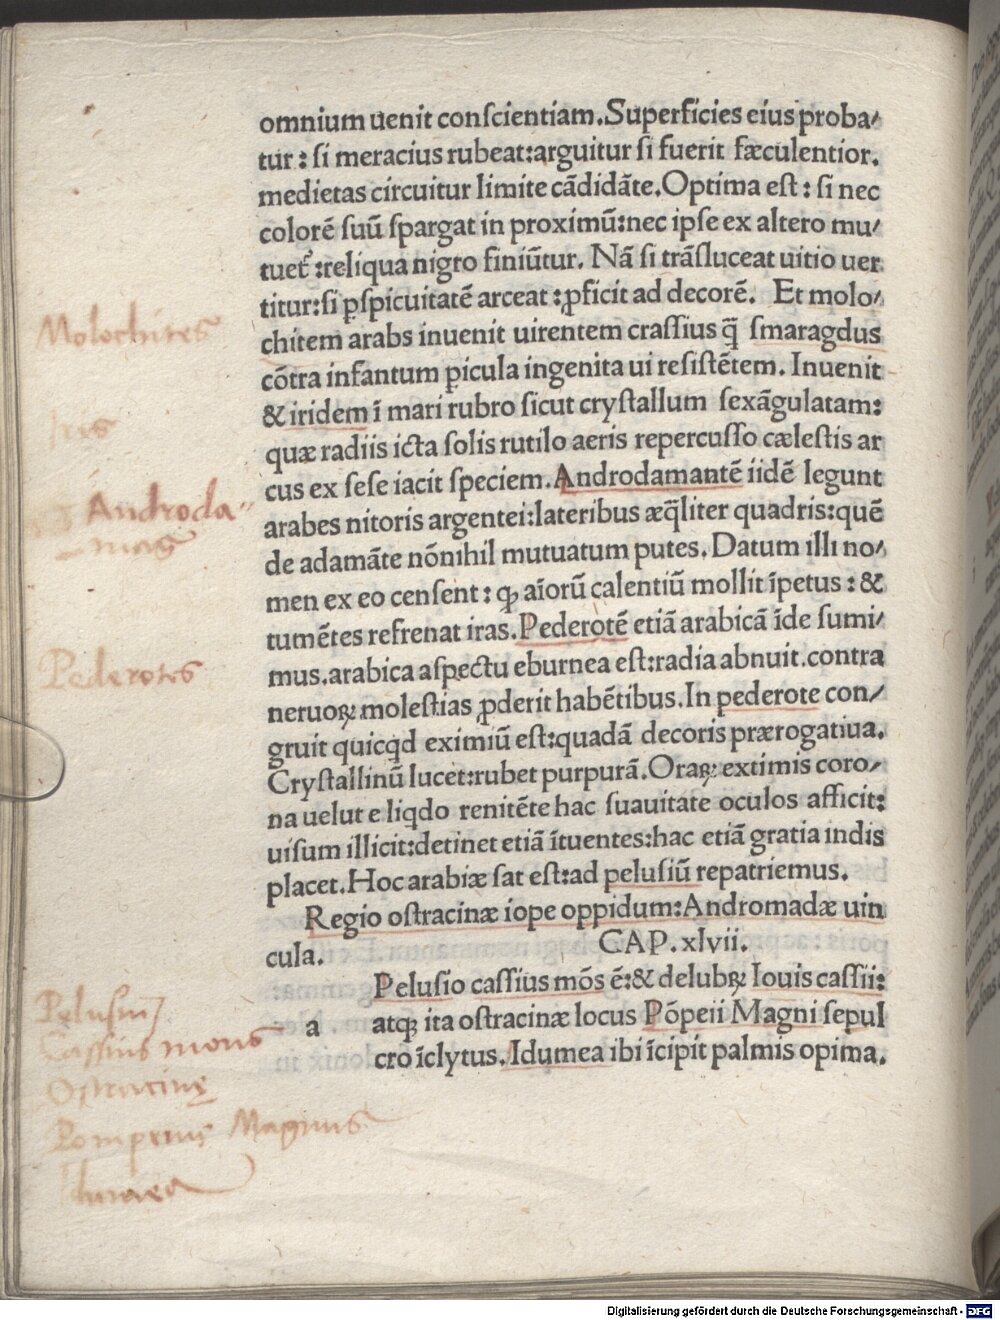 omnium uenit conſcientiam.Superficies eius proba/
tur : ſi meracius rubeat:arguitur ſi fuerit fæculentior.
medietas circuitur limite cādidāte.Optima eſt : ſi nec
colorē ſuū ſpargat in proximū:nec ipſe ex altero mu/
tuet᷑ :reliqua nigro finiūtur. Nā ſi trāſluceat uitio uer
titur:ſi ꝑſpicuitatē arceat :ꝓficit ad decorē. Et molo/
chitem arabs inuenit uirentem craſſius q̄̄ ſmaragdus
cōtra infantum ꝑicula ingenita ui reſiſtētem. Inuenit
& iridem ī mari rubro ſicut cryſtallum ſexāgulatam:
quæ radiis icta ſolis rutilo aeris repercuſſo cæleſtis ar
cus ex ſeſe iacit ſpeciem.Androdamantē iidē legunt
arabes nitoris argentei:lateribus æq̄liter quadris:quē
de adamāte nōnihil mutuatum putes.Datum illi no/
men ex eo cenſent : ꝙ aīorū calentiū mollit īpetus : &
tumētes refrenat iras.Pederotē etiā arabicā īde ſumi/
mus.arabica aſpectu eburnea eſt:radia abnuit.contra
neruoꝝ moleſtias ꝓderit habētibus.In pederote con/
gruit quicq̇d eximiū eſt:quadā decoris prærogatiua.
Cryſtallinū lucet:rubet purpurā.Oraꝝ: extimis coro/
na uelut e liq̇do renitēte hac ſuauitate oculos afficit:
uiſum illicit:detinet etiā ītuentes:hac etiā gratia indis
placet.Hoc arabiæ ſat eſt:ad peluſiū repatriemus.
Regio oſtracinæ iope oppidum:Andromadæ uin
cula. CAP.xlvii.
Peluſio caſſius mōs ē:& delubꝝ Iouis caſſii:
a atqꝫ ita oſtracinæ locus Pōpeii Magni ſepul
cro īclytus.Idumea ibi īcipit palmis opima.
Molochites
Iris
Androda-
mas
Pederotes
Peluſiu
Caſſius mons
Oſtracinę
Pompeius Magnus
Idumea
Digitalisierung gefördert durch die Deutsche Forschungsgemeinschaft - DFG